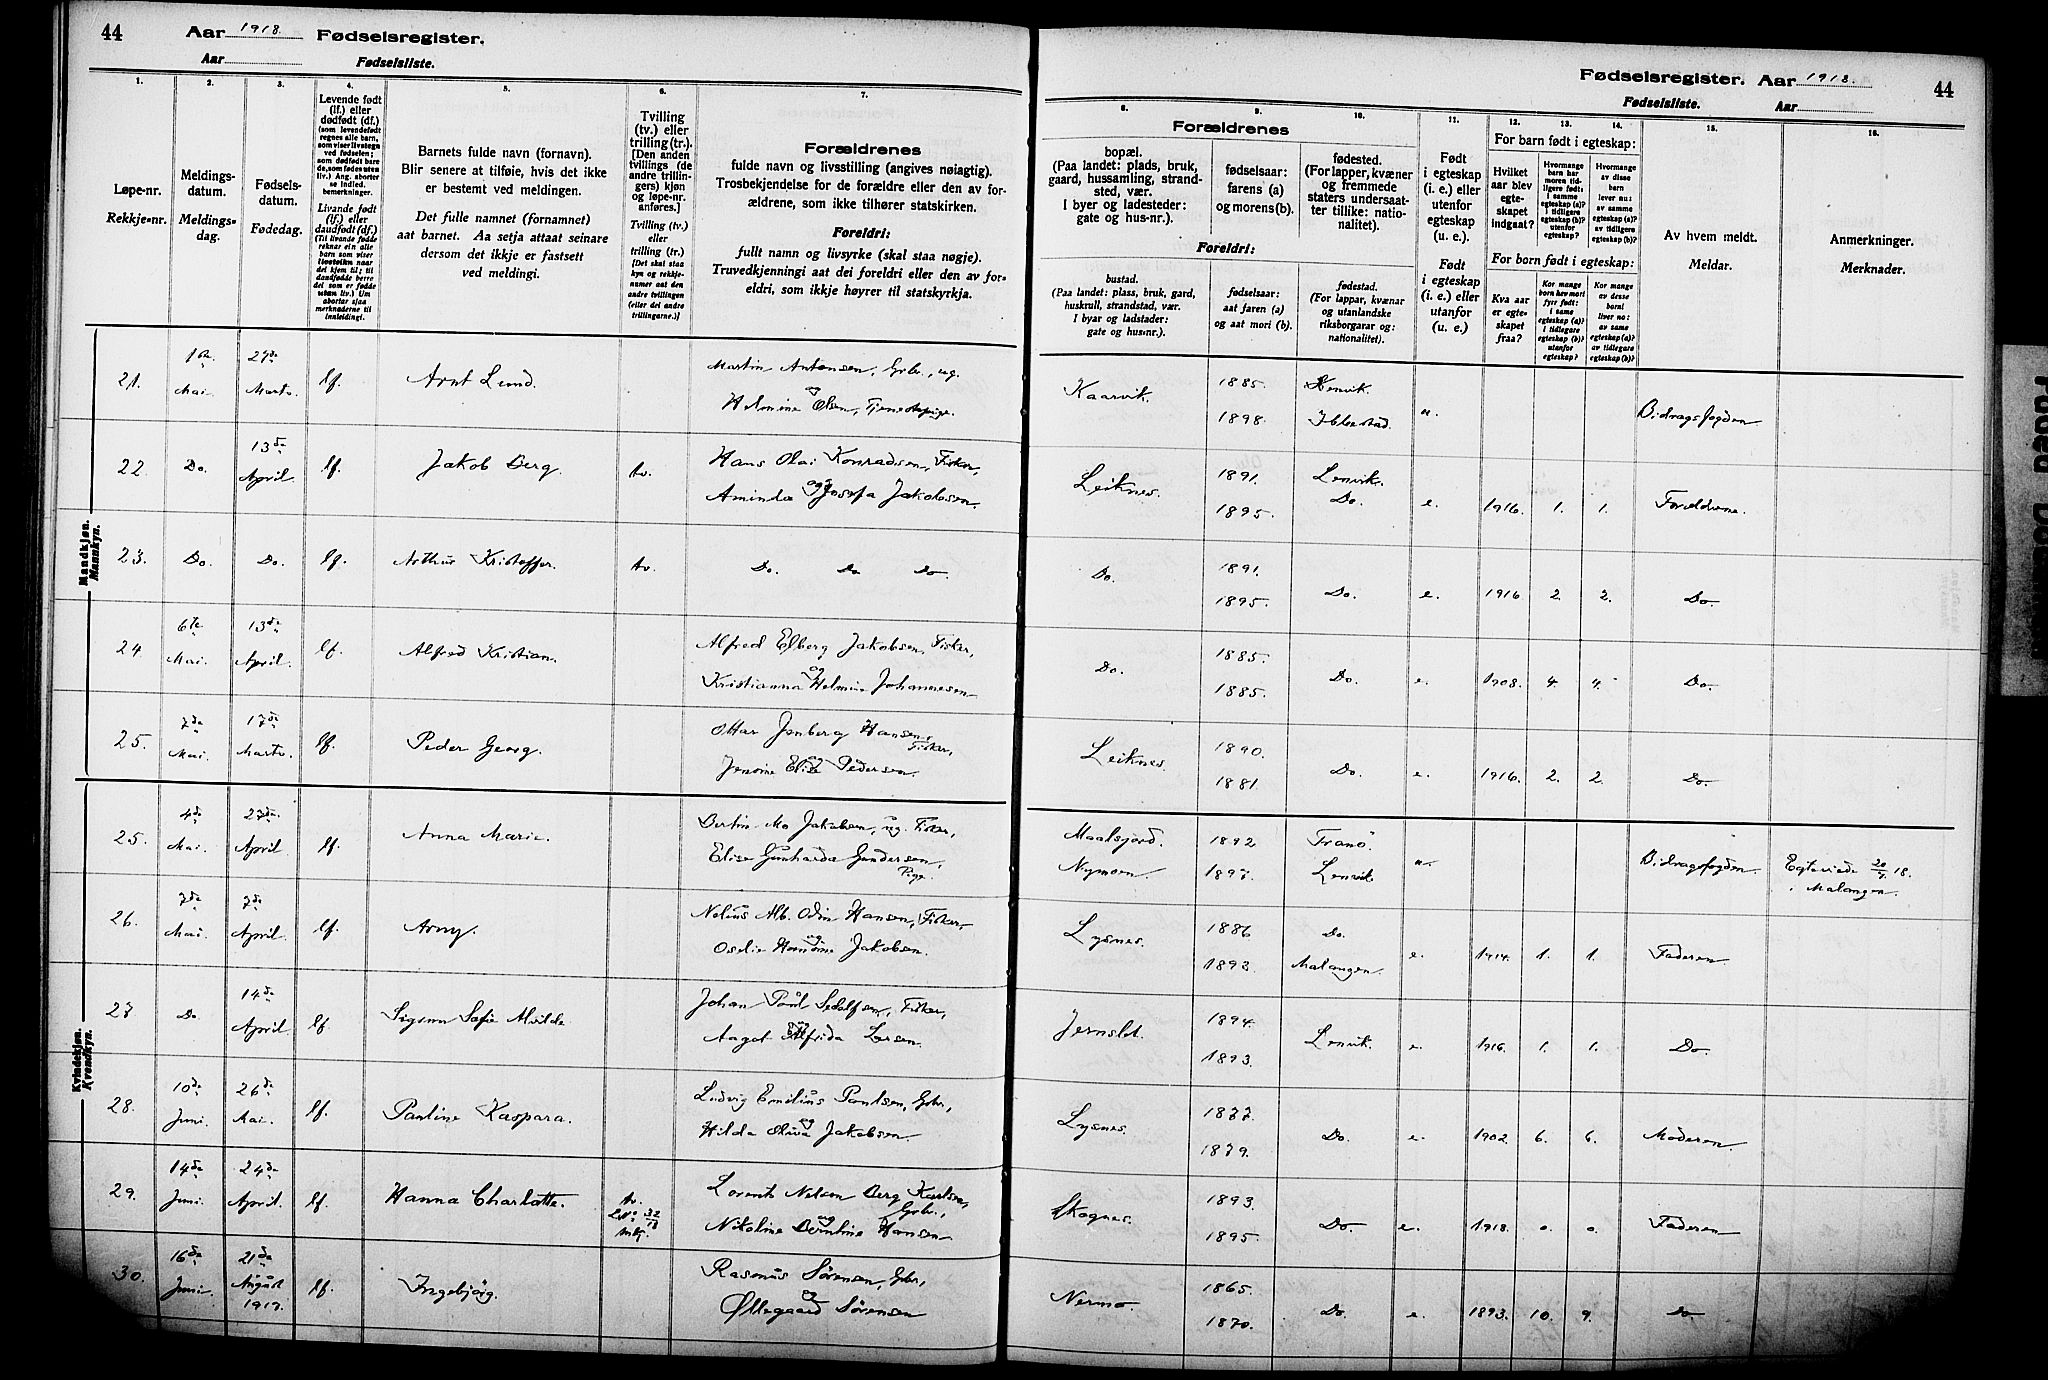 44 Aar 1918. Fødselsregister.
Aar Fødselsliste.
1. 2. 3. 4. 5. 6. 7.
Løpe-nr.
Rekkje-nr.
Meldings-
datum.
Meldings-
dag.
Fødsels-
datum.
Fødedag.
Levende født
(lf.) eller
dødfødt (df.)
(som levendefødt
regnes alle barn,
som viser livstegn
ved fødselen;
som dødfødt bare
de, som fødes uten
liv.) Ang. aborter
se indled.
bemerkninger.
Livande født
(lf.) eller
daudfødt (df.)
(Til livande fødde
reknar ein alle
barn som viser
livsteikn naar
dei kjem til; til
daudfødde berre
dei som er fødde
utan liv.) Um
abortar sjaa
merknaderne til
innleidingi.
Barnets fulde navn (fornavn).
Blir senere at tilføie, hvis det ikke
er bestemt ved meldingen.
Det fulle namnet (fornamnet)
aat barnet. Aa setja attaat seinare
dersom det ikkje er fastsett
ved meldingi.
Tvilling
(tv.) eller
trilling (tr.)
[Den anden
tvillings (de
andre trillin-
gers) kjøn
og løpe-nr.
anføres.]
Tvilling (tv.)
eller
trilling (tr.)
[Det skal staa
kyn og rekkje-
numer aat den
andre tvillingen
(eller dei andre
trillingarne.)]
Forældrenes
fulde navn og livsstilling (angives nøiagtig).
Trosbekjendelse for de forældre eller den av for-
ældrene, som ikke tilhører statskirken.
Foreldri:
fullt namn og livsyrke (skal staa nøgje).
Truvedkjenningi aat dei foreldri eller den av for-
eldri, som ikkje høyrer til statskyrkja.
Mandkjøn.
Mannkyn.
21. 1ste Mai. 29de Marts. lf. Arnt Lund. Martin Antonsen, Grbr., ug.
og
Helmine Olsen, Tjenestepige.
22. Do. 13de April. lf. Jakob Berg. tv. Hans Olai Konradsen, Fisker,
og
Aminda Josefa Jakobsen.
23. Do. Do. lf. Arthur Kristoffer. tv. Do. Do Do.
24. 6te Mai. 13de April. lf. Alfred Kristian. Alfred Elberg Jakobsen, Fisker,
og
Kristianna Helmine Johannesen
25. 7de Mai. 17de Marts. lf. Peder Georg. Ottar Jenberg Hansen,
Fisker,
og
Jensine Elise Pedersen.
Kvindekjøn.
Kvendkyn.
25. 4de Mai. 27de April. lf. Anna Marie. Bertin Mo Jakobsen, ug. Fisker,
Elise Gunharda Gundersen,
Pige.
26. 7de Mai. 7de April. lf. Arny. Nelius Alb. Odin Hansen, Fisker,
og
Oselie Jakobsen.
27 Do 14de April. lf Signe Sofie Alvilde Johan Paul Sedolfsen, Fisker,
og
Aagot Alfrida Larsen.
28. 10de Juni. 26de Mai. lf. Pauline Kaspara. Ludvig Emilius Paulsen, Grbr,
og
Hilda Oliva Jakobsen.
29. 14de Juni. 24de April. lf. Hanna Charlotte. tv.
LNo 32/18
mkj.
Lorents Nelsen Berg Karlsen,
Grbr.,
og
Nikoline Berntine Hansen
30. 16de Juni. 21de August 1917. lf. Ingebjørg. Rasmus Sørensen, Gbr,
og
Øllegaard Sørensen
Fødselsregister. Aar 1918. 44
Fødselsliste. Aar
8. 9. 10. 11. 12. 13. 14. 15. 16.
Forældrenes
bopæl.
(Paa landet: plads, bruk,
gaard, hussamling, strand-
sted, vær.
I byer og ladesteder:
gate og hus-nr.).
fødselsaar:
farens (a)
og morens (b).
fødested.
(For lapper, kvæner
og fremmede
staters undersaat-
ter tillike: natio-
nalitet).
Foreldri:
bustad.
(Paa landet: plass, bruk, gard,
huskrull, strandstad, vær.
I byar og ladstader:
gate og hus-nr.).
fødselsaar:
aat faren (a)
og aat mori (b).
fødestad.
(For lappar, kvænar
og utanlandske
riksborgarar og:
nationalitet).
Født
i egteskap
(i. e.) eller
utenfor
egteskap
(u. e.).
Født
i egteskap
(i. e.) eller
utanfor
(u. e.)
For barn født i egteskap:
Hvilket
aar blev
egte-
skapet
indgaat?
Hvormange
barn har
moren tid-
ligere født:
i samme
egteskap (a)?
i tidligere
egteskap (b)?
utenfor
egteskap?
Hvormange
av disse
barn
lever nu:
av samme
egteskap (a)?
av tidligere
egteskap (b)?
For born født i egteskap:
Kva aar
er egte-
skapet
fraa?
Kor mange
born hev mori
fyrr født:
i same
egteskap (a)?
i tidlegare
egteskap (b)?
utanfor
egteskap?
Kor mange
av desse
borni
liver no:
av same
egteskap (a)?
av tidlegare
egteskap (b)?
Av hvem meldt.
Meldar.
Anmerkninger.
Merknader.
Kaarvik. 1885. 1898. Lenvik. Ibbestad. u. Bidragsfogden
Leiknes. 1891. 1895. Lenvik. Do. e. 1916. 1. 1. Forældrene.
Do. 1891. 1895. Do. e. 1916 2. 2. Do.
Do. 1885. 1885. Do. e. 1908. 4. 4. Do.
Leiknes. 1890. 1881. Do. e. 1916. 2. 2. Do.
Maalsjord. 1892 Tranö.
Nymoen 1897. Lenvik u. Bidragsfogden. Egteviede 20/7 18.
i Malangen.
Lysnes. 1886 1893. Do. Malangen. e. 1914. 1. 1. Faderen.
Jernslet. 1894. 1893. Lenvik. e. 1916. 1. 1. Do.
Lysnes. 1877. 1879. Do. e. 1902. 6. 6. Moderen
Skognes. 1893. 1895. Do. e. 1918. 0. 0. Faderen
Nermo. 1865. 1870. Do. e. 1893. 10. 9. Do